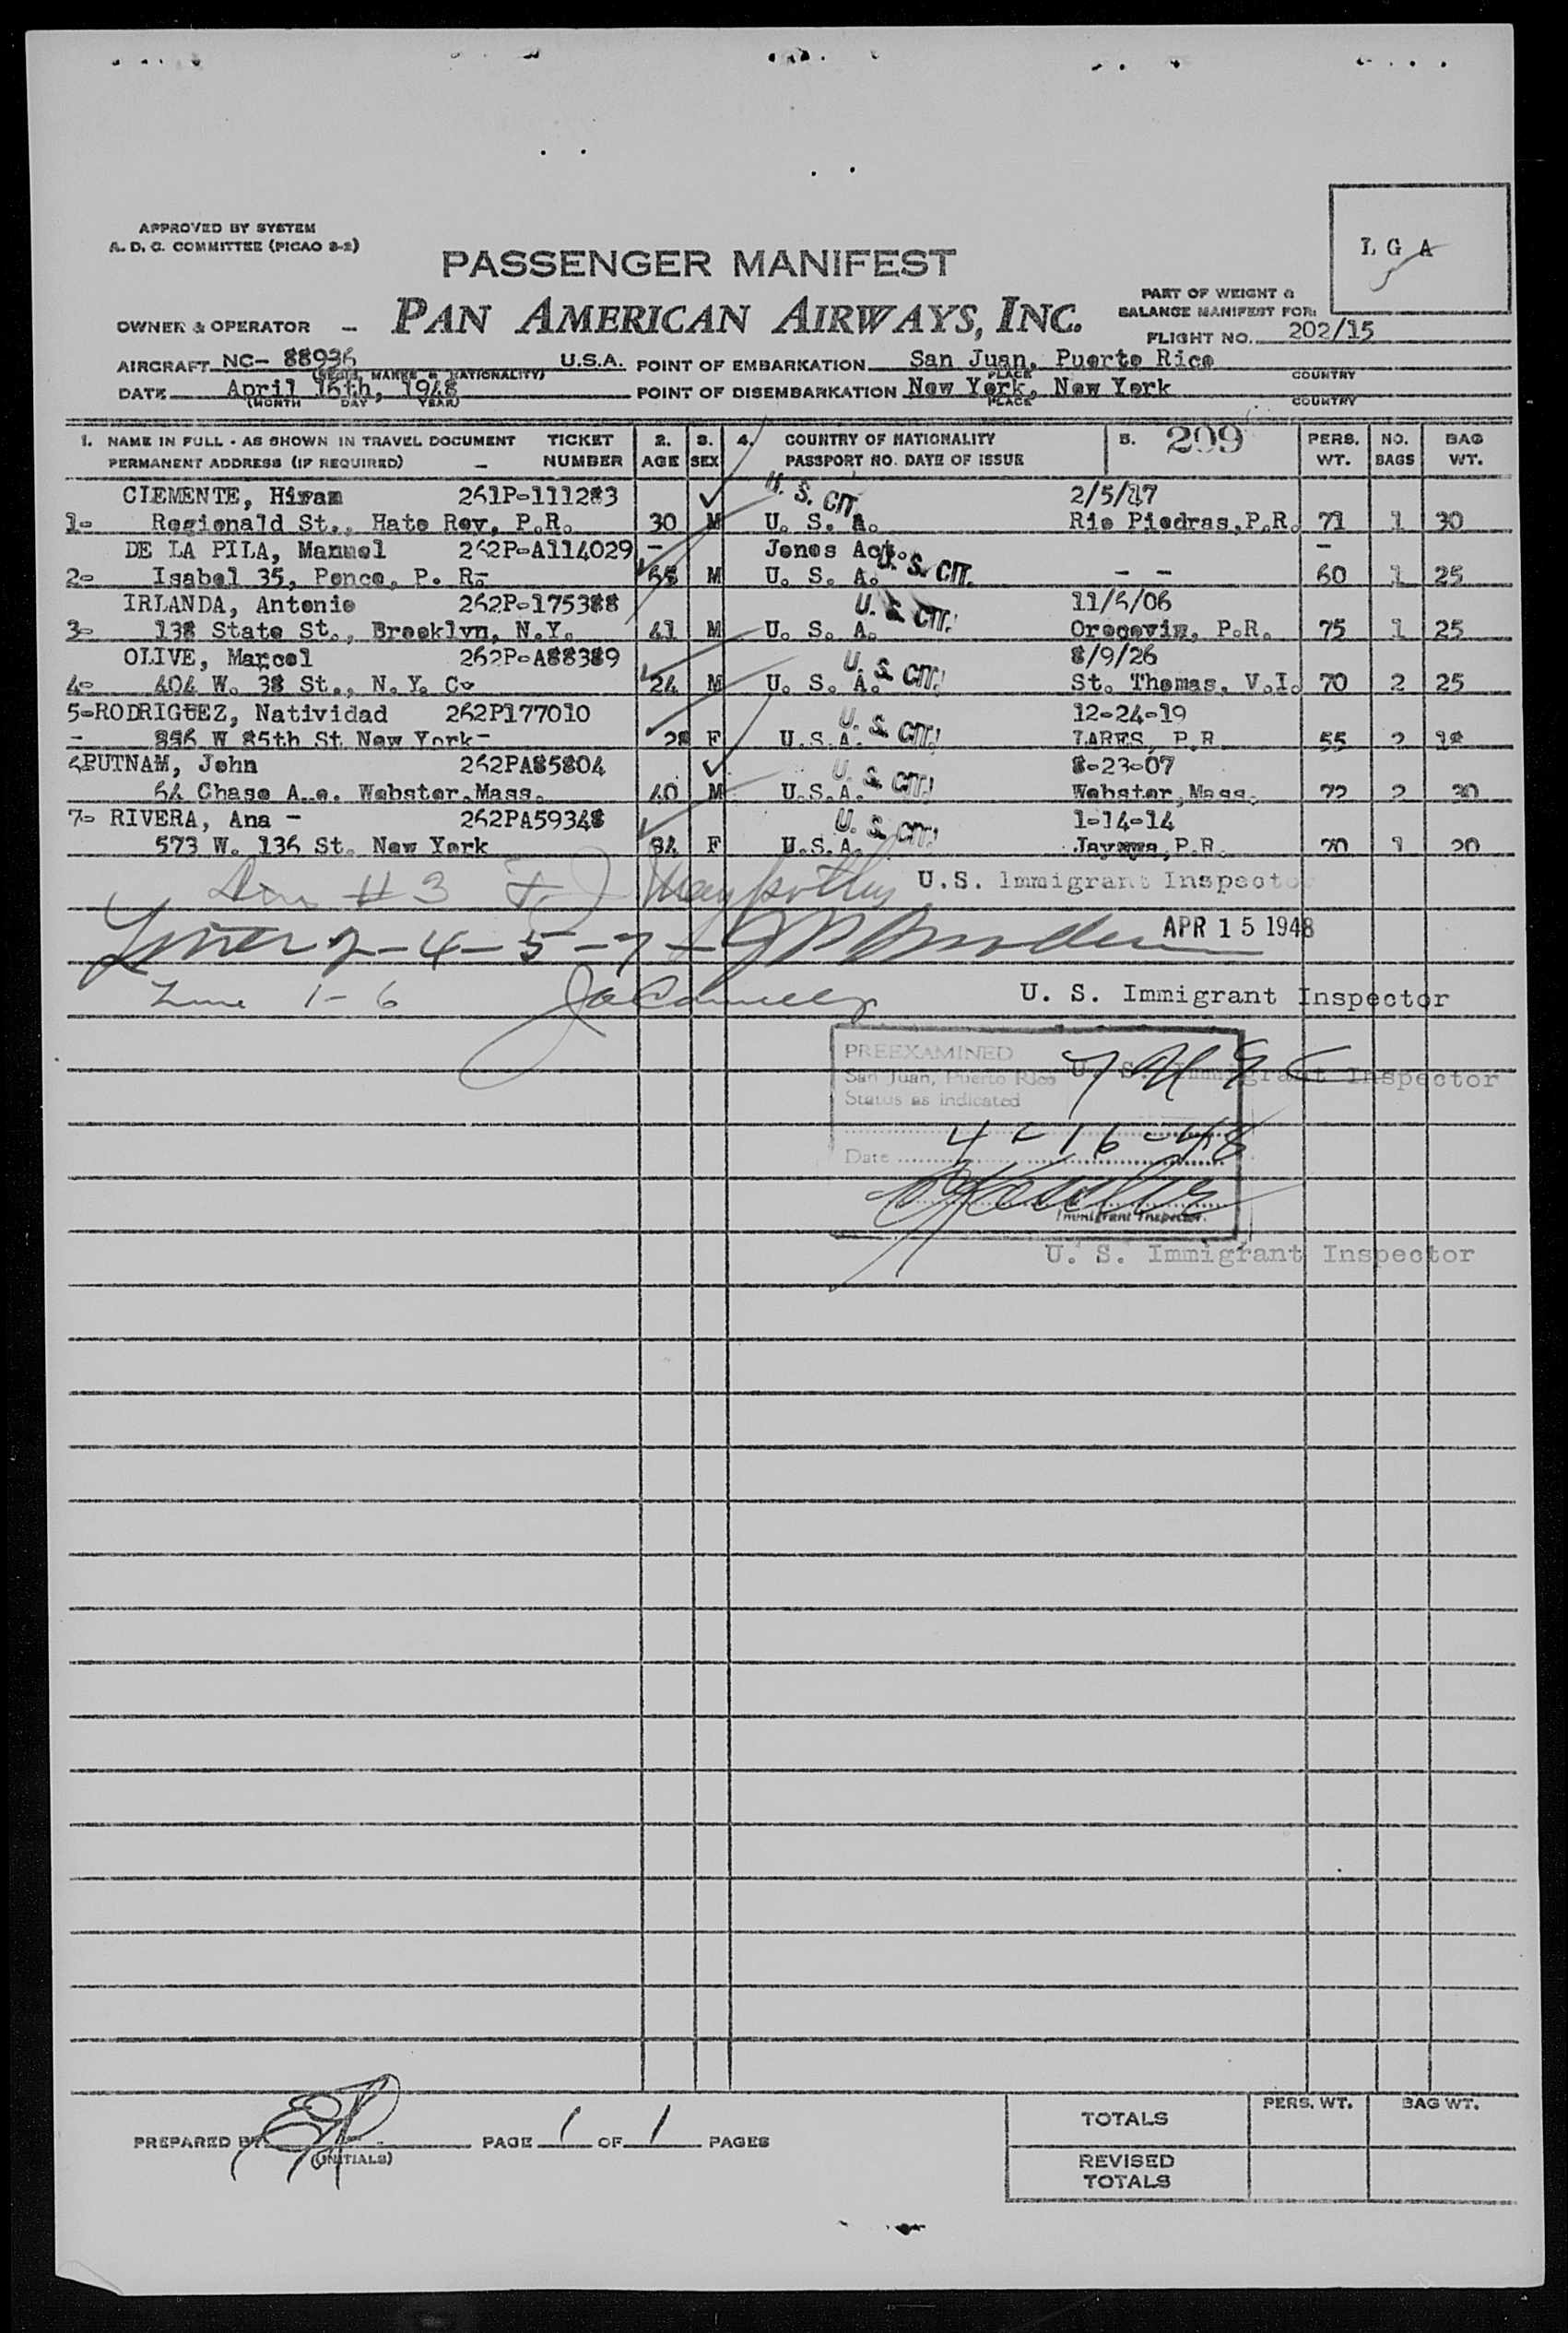 APPROVED BY SYSTEM
A. D. C. COMMITTEE (PICAO 3-2)
L G A
PASSENGER MANIFEST
PART OF WEIGHT &
BALANCE MANIFEST FOR:
OWNER & OPERATOR — PAN AMERICAN AIRWAYS, INC.
FLIGHT NO. 202/15
AIRCRAFT NC- 88936 U.S.A. POINT OF EMBARKATION San Juan, Puerto Rico
(SERIAL MARKS & NATIONALITY) PLACE COUNTRY
DATE April 16th, 1948 POINT OF DISEMBARKATION New York, New York
(MONTH DAY YEAR) PLACE COUNTRY
1. NAME IN FULL - AS SHOWN IN TRAVEL DOCUMENT TICKET 2. 3. 4. COUNTRY OF NATIONALITY 5. 299 PERS. NO. BAG
PERMANENT ADDRESS (IF REQUIRED) — NUMBER AGE SEX PASSPORT NO. DATE OF ISSUE WT. BAGS WT.
CLEMENTE, Hiram 261P-111283 U. S. CIT. 2/5/17
1- Regionald St., Hato Rey, P.R. 30 M U. S. A. Rio Piedras, P.R. 71 1 30
DE LA PILA, Manuel 262P-A114029 - Jones Act. U. S. CIT. -
2- Isabel 35, Ponce, P. R.- 68 M U. S. A. - - 60 1 25
IRLANDA, Antonio 262P-175388 U. S. CIT. 11/6/06
3- 138 State St., Brooklyn, N.Y. 41 M U. S. A. Orocovix, P.R. 75 1 25
OLIVE, Marcel 262P-A88389 U. S. CIT. 8/9/26
4- 404 W. 38 St., N. Y. C- 24 M U. S. A. St. Thomas, V.I. 70 2 25
5-RODRIGUEZ, Natividad 262P177010 U. S. CIT. 12-24-19
- W 85th St New York- 28 F U.S.A. LARES, P.R. 55 2 18
6PUTNAM, John 262PA85804 U. S. CIT. 8-23-07
64 Chase A.e. Webster, Mass. 40 M U.S.A. Webster, Mass. 72 2 30
7- RIVERA, Ana - 262PA59348 U. S. CIT. 1-14-14
573 W. 136 St. New York 34 F U.S.A. Jayuya, P.R. 70 1 20
# 3 U.S. Immigrant Inspector
Lines 2-4-5-7- APR 15 1948
Line 1-6 U. S. Immigrant Inspector
PREEXAMINED
San Juan, Puerto Rico U. S. Immigrant Inspector
Status as indicated
Date 4-16-48
Immigrant Inspector.
U. S. Immigrant Inspector
PREPARED BY PAGE 1 OF 1 PAGES
(INITIALS)
TOTALS PERS. WT. BAG WT.
REVISED
TOTALS